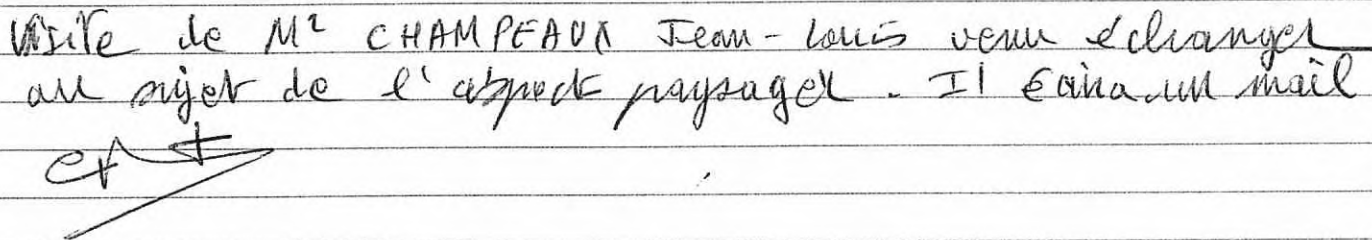 Visite de Mr CHAMPEAUX Jean-Louis venu échanger
au sujet de l'aspect paysager. Il écrira un mail